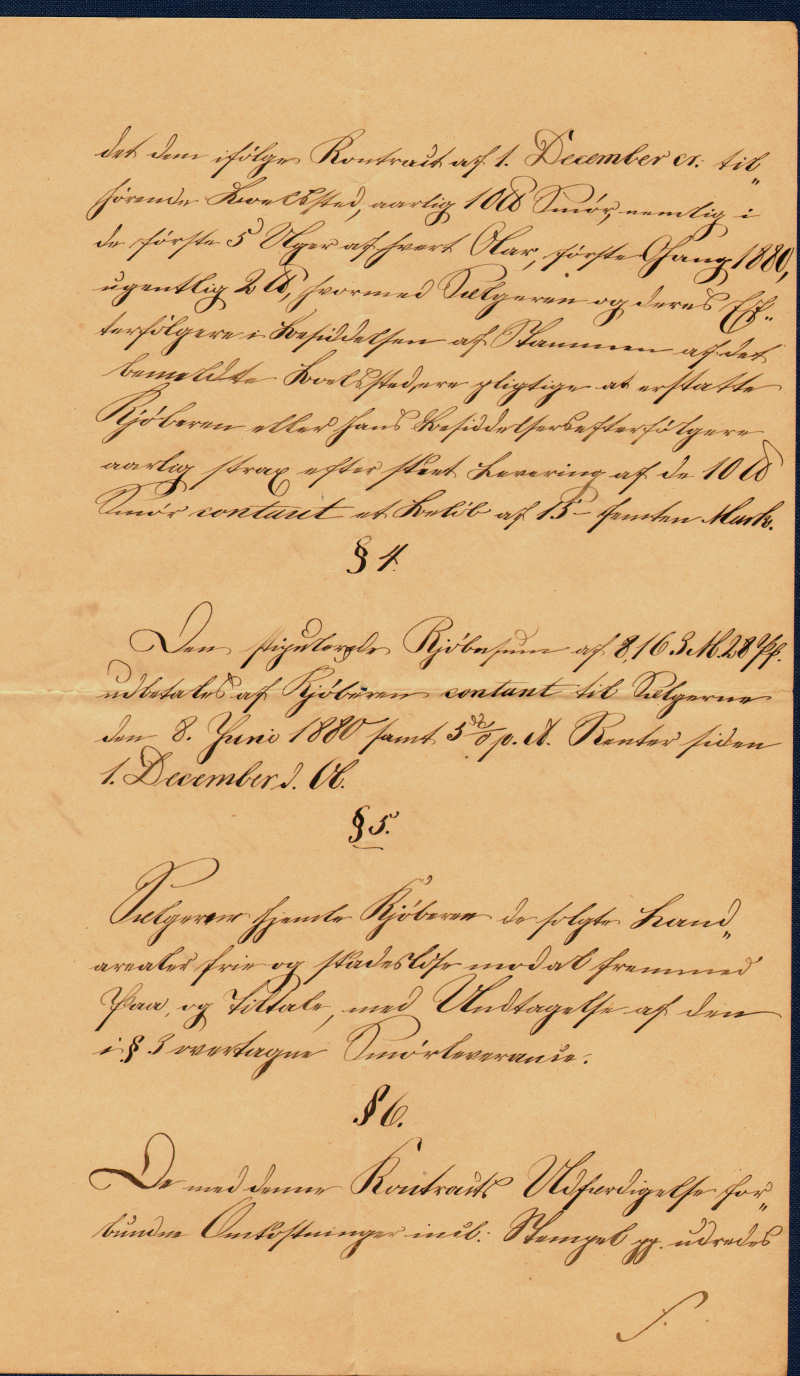 det dem ifølge Kontract af 1. December cr. til„
hørende Boelssted, aarlig 10 ℔ Smør, nemlig i
de første 5 Uger af hvert Aar, første Gang 1880,
ugentlig 2 ℔, hvormed Sælgeren og deres Ef„
terfølgere i Besiddelsen af Stammen af det
bemeldte Boelssted, ere pligtige at erstatte
Kjøberen eller hans Besiddelsesefterfølgere
aarlig strax efter skeet Levering af de 10 ℔
Smør contant et Beløb af 15 – femten Mark.
§ 4.
Den stipulerede Kjøbesum af 8,163 M. 28 Pf.
udbetales af Kjøberen contant til Sælgerne
den 8. Juni 1880 samt 5 % p. A. Renter siden
1. December d. A.
§ 5.
Sælgerne hjemle Kjøberen de solgte Land„
arealer frie og skadesløse mod al fremmed
Paa, og Tiltale, med Undtagelse af den
i § 3 overtagne Smørleverance.
§ 6.
De med denne Kontracts Udfærdigelse for„
bundne Omkostninger incl. Stempel pp. udredes